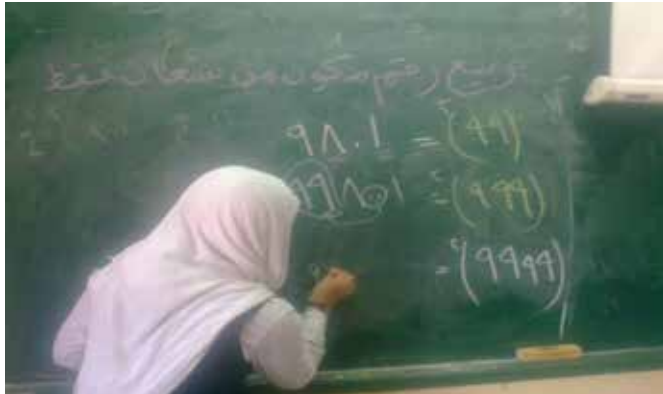 تربيع رقم مكون من تسعات فقط
(٩٩)٢ = ٩٨٠١
(٩٩٩)٢ = ٩٩٨٠٠١
(٩٩٩٩)٢ =